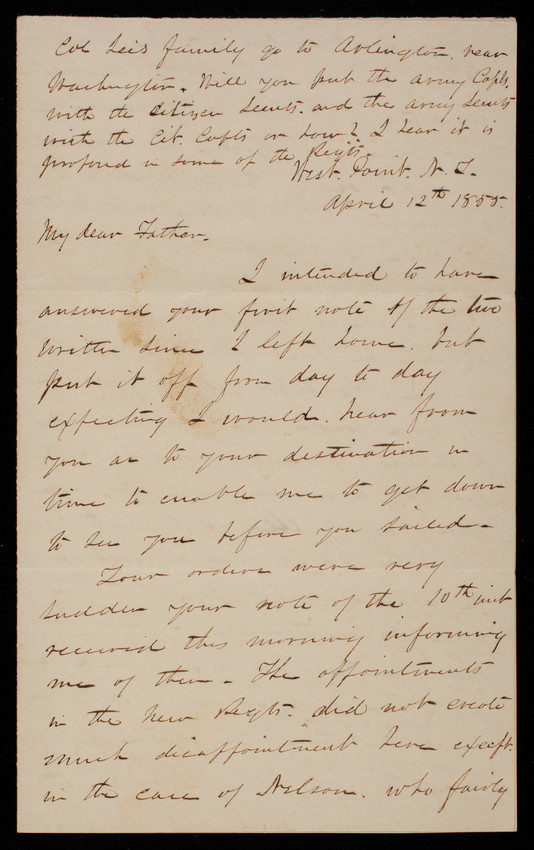 Col Lees family go to Arlington, near
Washington. Will you put the army Capts.
with the citizen Lieuts. and the army Lieuts
with the Cit. Capts or how? I hear it is
proposed in some of the Regts.
West. Point. N. Y.
April 12th 1855.
My dear Father.
I intended to have
answered your first note of the two
written since I left home. but
put it off from day to day
expecting I would. hear from
you as to your destination in
time to enable me to get down
to see you before you sailed.
Your orders were very
sudden your note of the 10th inst
received this morning informing
me of them. The appointments
in the new Regts. did not create
much disappointment here except.
in the case of Nelson. who fairly